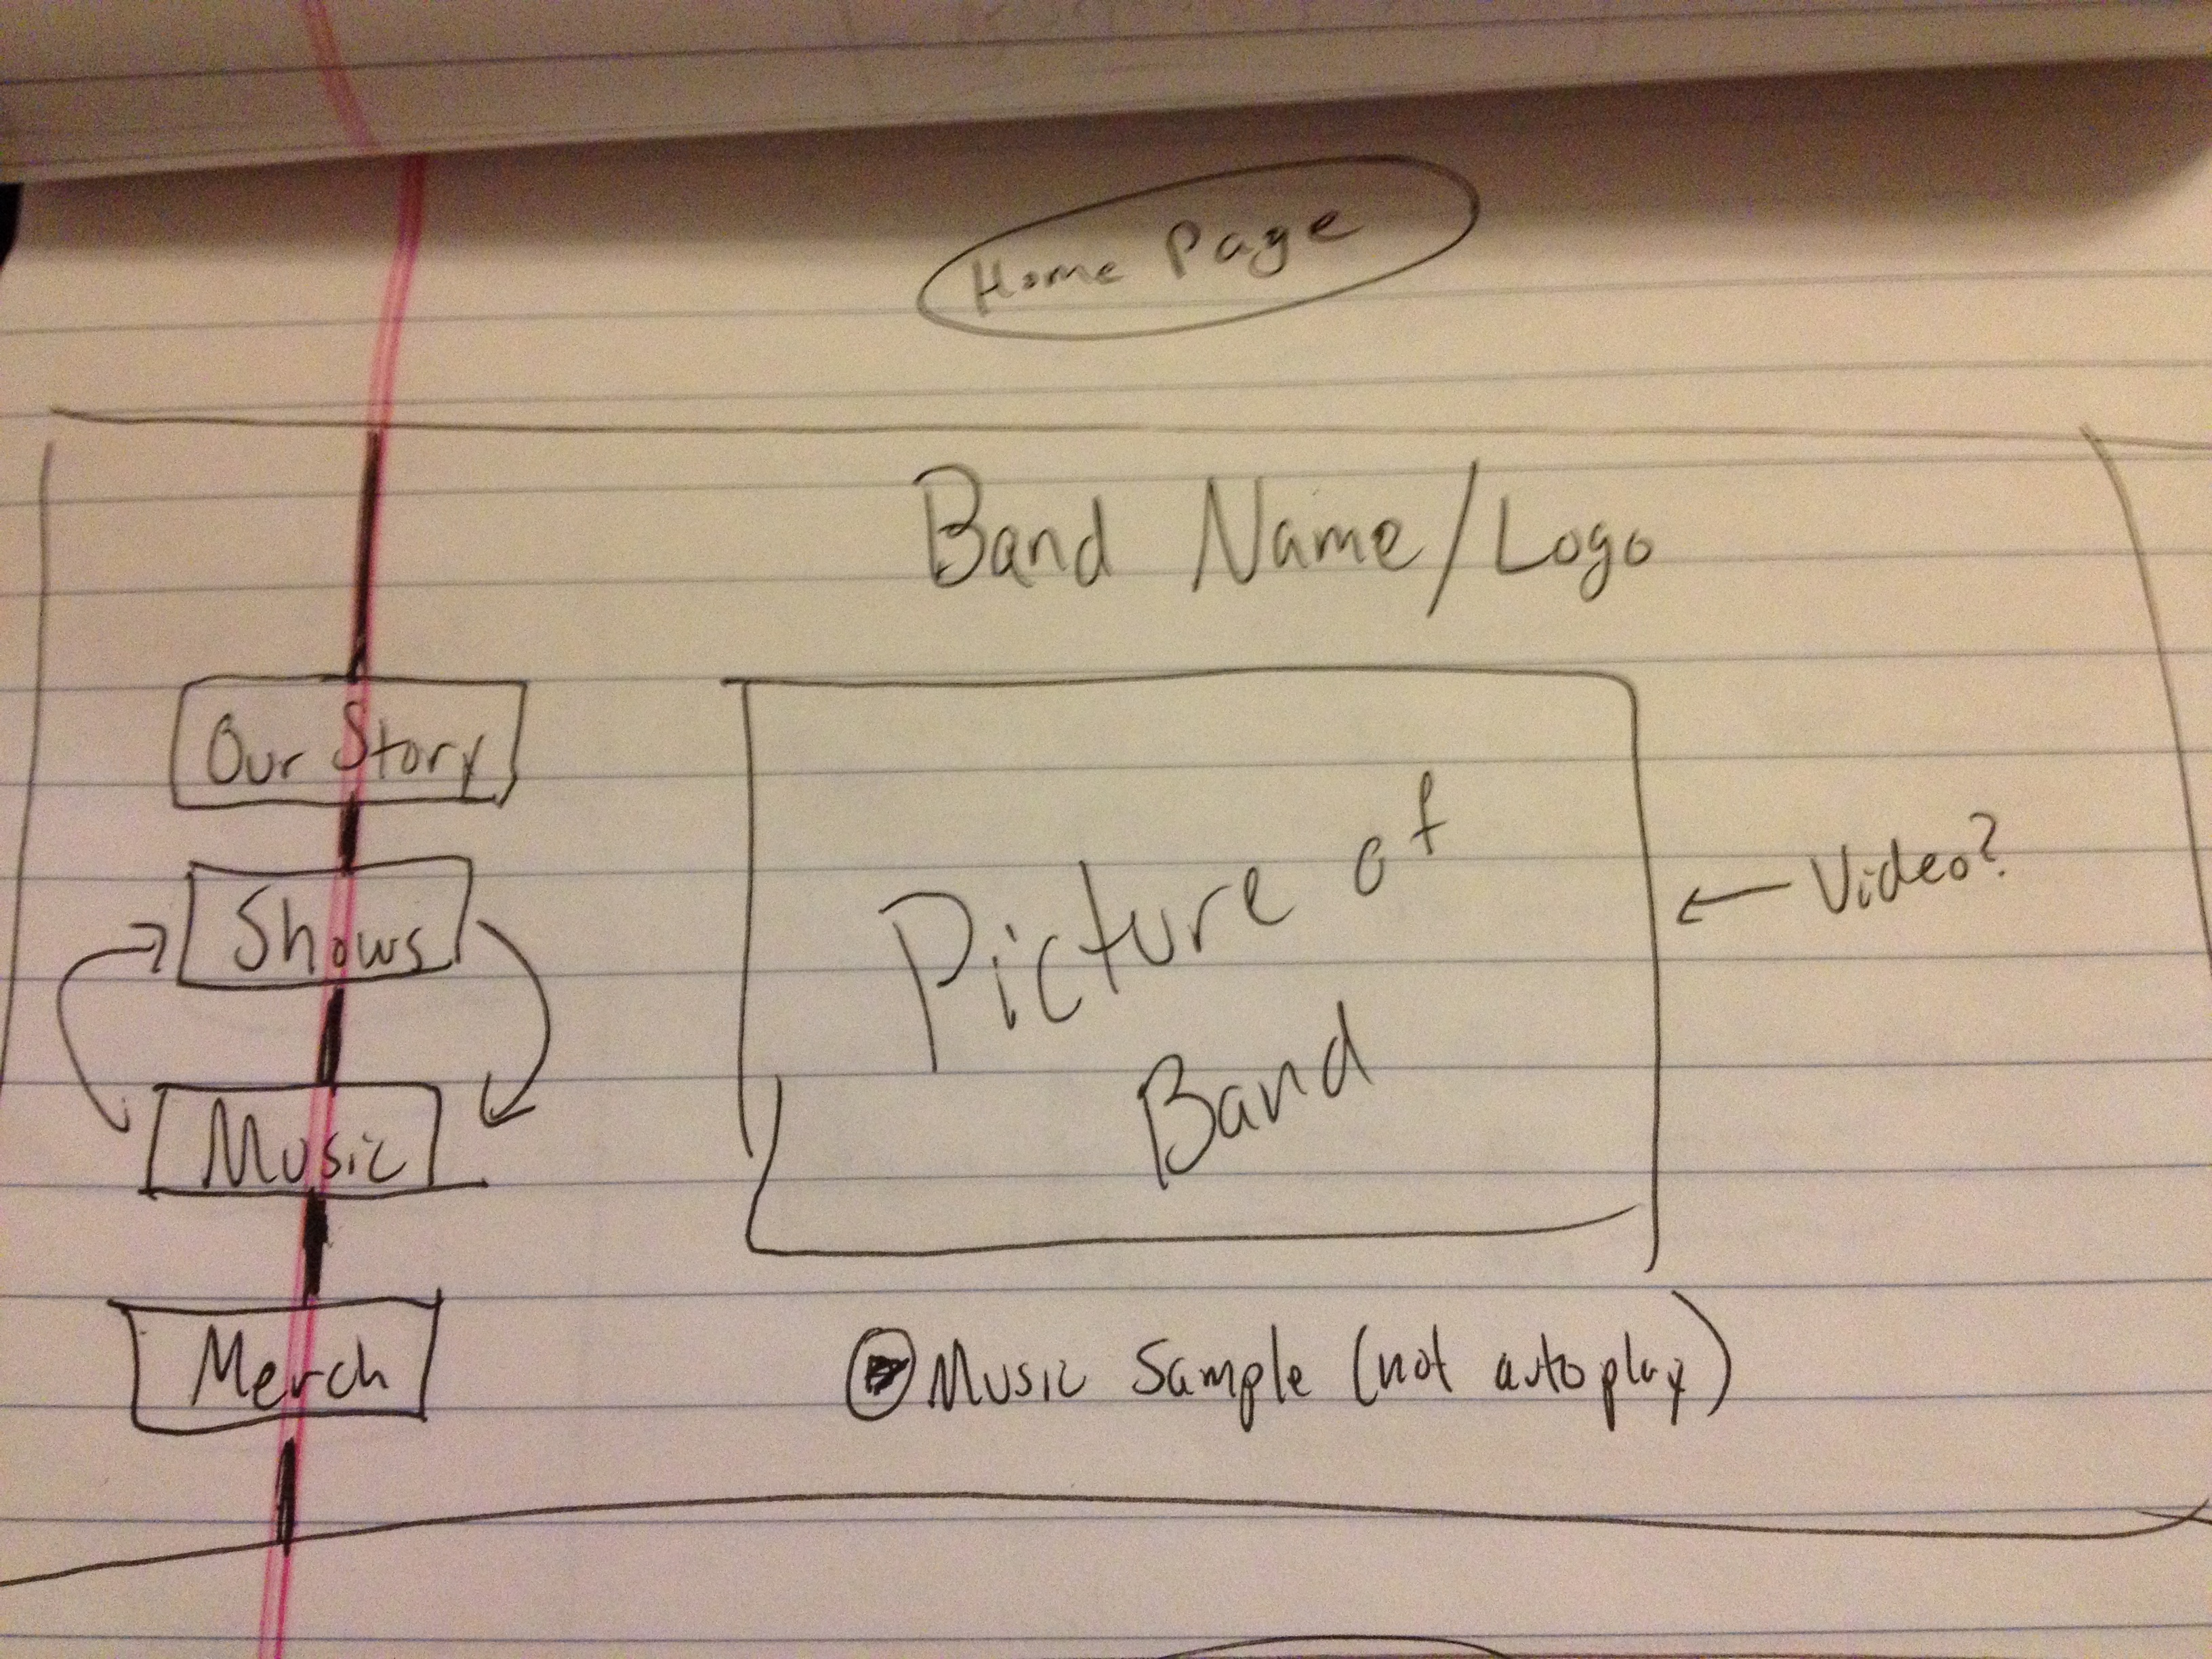 Home Page
Band Name/Logo
Our Story
Shows
Music
Merch
Picture of
Band
← Video?
Music Sample (not autoplay)